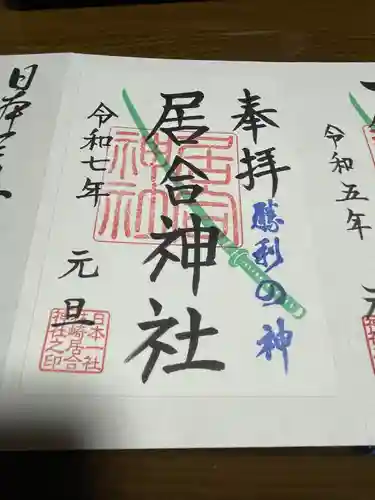 奉拝
勝利の神
居合神社
居合
神社
令和七年
元旦
日本一社
林崎居合
神社之印
令和五年
元